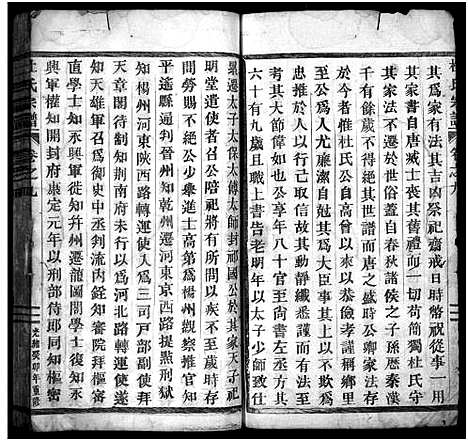 杜氏宗譜
卷之九
其為家有法其吉凶祭祀齋戒日時幣祝從事一用
其家書自唐滅士喪其舊禮而一切苟簡獨杜氏守
其家法不遷於世俗蓋自春秋諸侯之子孫歷秦漢
千有餘歲得不絕其世譜而唐之盛時公卿家法存
於今者惟杜氏公自曾高以來以恭儉孝謹稱鄉里
至公為人尤廉潔自剋其為大臣事其上以不欺為
忠推於人以行取信故動靜纖悉謹而有法至考其
大節偉如也公享年八十官至尚書左丞方其
六十有九歲且盡即上書告老明年以太子少師致仕
累遷太子太保太傅太師封祁國公於其家天子祀
明堂遣使者召公陪祀將有所問以疾不至歲時存
問勞賜不絕公少舉進士高第為揚州觀察推官知
平遙縣通判晉州知乾州遷河東京西路提點刑獄
知揚州河東陝西路轉運使入為三司戶部副使拜
天章閣待制知荊南府未行以為河北路轉運使召
知天雄軍召為御史中丞判流內銓知審官院拜樞密
直學士知永興軍徙知并州遷龍圖閣學士復知永
興軍權知開封府康定元年以刑部侍郎同知樞密
杜氏宗譜
卷之九
光緒癸卯年重修